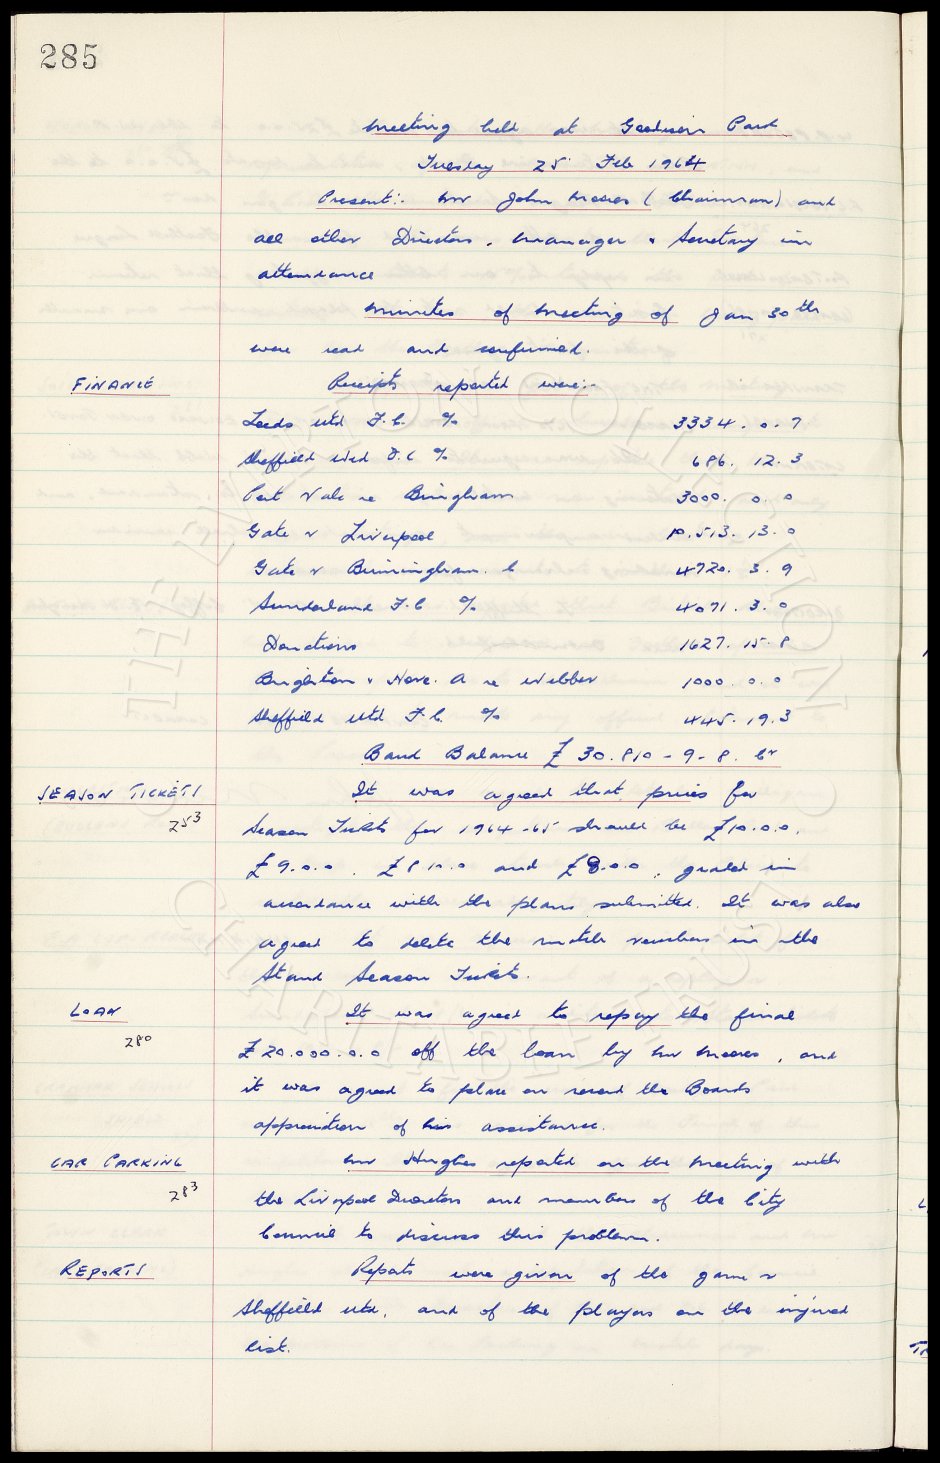 285
Meeting held at Goodison Park
Tuesday 25 Feb 1964
Present:- Mr John Moores (Chairman) and
all other Directors, Manager & Secretary in
attendance
Minutes of Meeting of Jan 30th
were read and confirmed.
FINANCE Receipts reported were:-
Leeds Utd F.C. % 3334. 0. 7
Sheffield Wed F.C % 686. 12. 3
Port Vale re Bingham 3000. 0. 0
Gate v Liverpool 10.513. 13. 0
Gate v Birmingham. C 4720. 3. 9
Sunderland F.C % 4071. 3. 0
Donations 1627. 15. 8
Brighton & Hove. A re Webber 1000. 0. 0
Sheffield Utd F.C. % 445. 19. 3
Bank Balance £30.810-9-8. Cr
SEASON TICKETS It was agreed that prices for
253 Season Tickets for 1964-65 should be £10.0.0,
£9.0.0, £8 10.0 and £8.0.0, graded in
accordance with the plans submitted. It was also
agreed to delete the match numbers in the
Stand Season Tickets.
LOAN It was agreed to repay the final
280 £20.000.0.0 off the loan by Mr Moores, and
it was agreed to place on record the Boards
appreciation of his assistance.
CAR PARKING Mr Hughes reported on the Meeting with
283 the Liverpool Directors and members of the City
Council to discuss this problem.
REPORTS Reports were given of the game v
Sheffield Utd, and of the players on the injured
list.
THE EVERTON COLLECTION
CHARITABLE TRUST